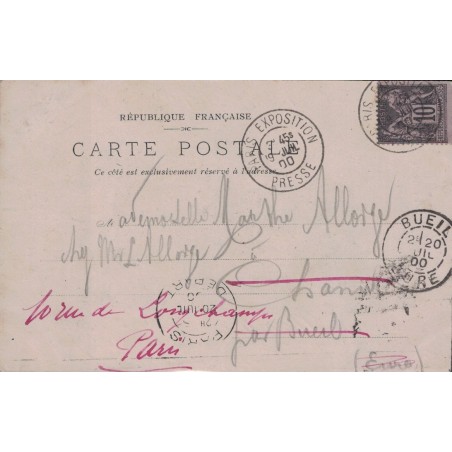 RÉPUBLIQUE FRANÇAISE
CARTE POSTALE
Ce côté est exclusivement réservé à l'adresse
PARIS EXPOSITION
PRESSE
JUIL
00
PARIS EXPOSITION
10
Mademoiselle Marthe Allorge
chez Mr Allorge
par Bueil
(Eure)
10 rue de Longchamps
Paris
BUEIL
20
JUIL
00
EURE
PARIS
DEPART